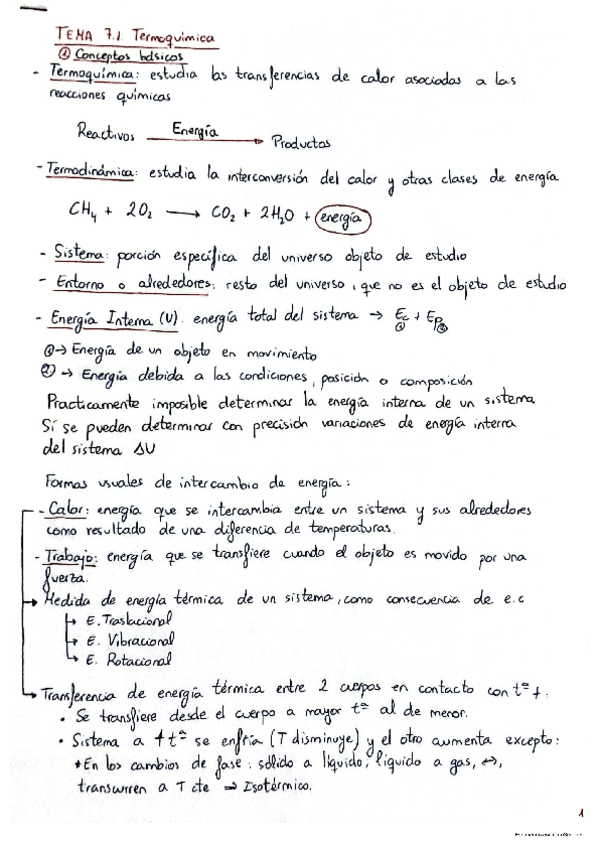 TEMA 7.1. Termoquímica
① Conceptos básicos
- Termoquímica: estudia las transferencias de calor asociadas a las
reacciones químicas
Reactivos Energía → Productos
- Termodinámica: estudia la interconversión del calor y otras clases de energía
CH₄ + 2O₂ → CO₂ + 2H₂O + energía
- Sistema: porción específica del universo objeto de estudio
- Entorno o alrededores: resto del universo, que no es el objeto de estudio
- Energía Interna (U). energía total del sistema → Ec① + Ep②
①→ Energía de un objeto en movimiento
② → Energía debida a las condiciones, posición o composición
Practicamente imposible determinar la energía interna de un sistema
Sí se pueden determinar con precisión variaciones de energía interna
del sistema ΔU
Formas usuales de intercambio de energía:
- Calor: energía que se intercambia entre un sistema y sus alrededores
como resultado de una diferencia de temperaturas.
- Trabajo: energía que se transfiere cuando el objeto es movido por una
fuerza.
→ Medida de energía térmica de un sistema, como consecuencia de e.c
→ E. Traslacional
→ E. Vibracional
→ E. Rotacional
→ Transferencia de energía térmica entre 2 cuerpos en contacto con tª ≠.
• Se transfiere desde el cuerpo a mayor tª al de menor.
• Sistema a ↑tª se enfría (T disminuye) y el otro aumenta excepto:
*En los cambios de fase: sólido a líquido, líquido a gas, ↔,
transcurren a T cte → Isotérmico.
1